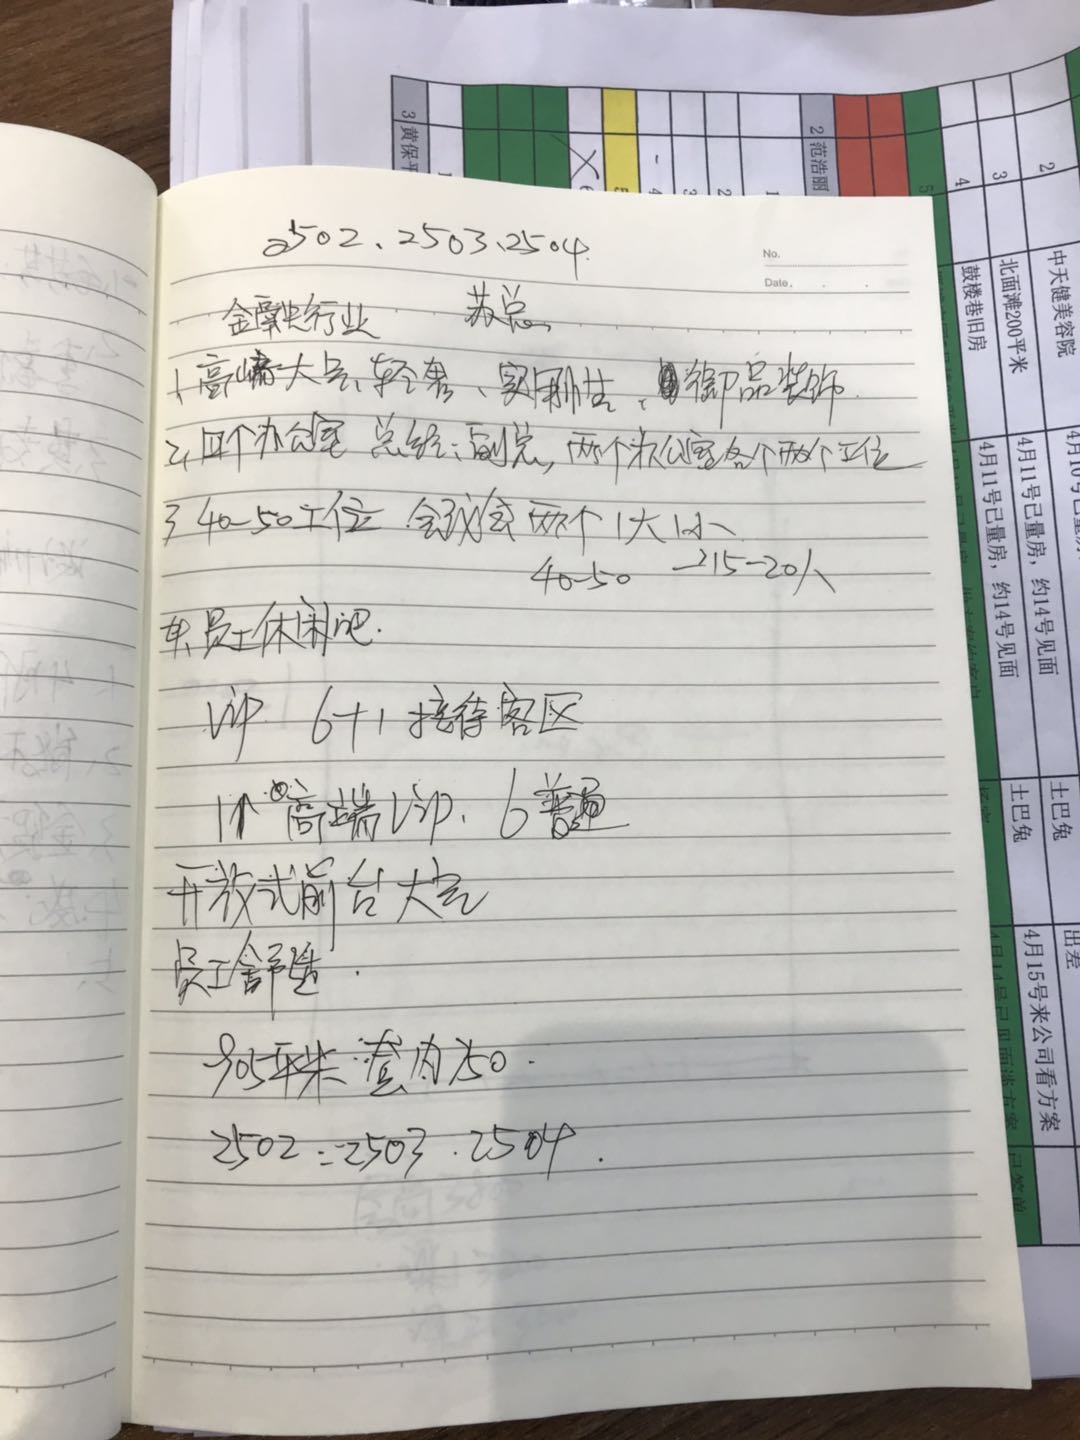 2502、2503、2504
No.
Date.
金融行业 苏总
1、高端大气、轻奢、实用性、御品装饰
2、四个办公室 总经:副总,两个办公室各个两个工位
3 40-50工位 会议室两个1大1小
40-50 →15-20人
4、员工休闲吧.
Vip 6+1 接待客区
1个高端Vip. 6普通
开放式前台大气
员工舒适.
905平米 套内750.
2502 2503.2504.
3 黄保平
2 范浩丽
5
4 鼓楼巷旧房 4月11号已量房，约14号见面
3 北面滩200平米 4月11号已量房，约14号见面 土巴兔 4月15号来公司看方案
2 中天健美容院 土巴兔 出差